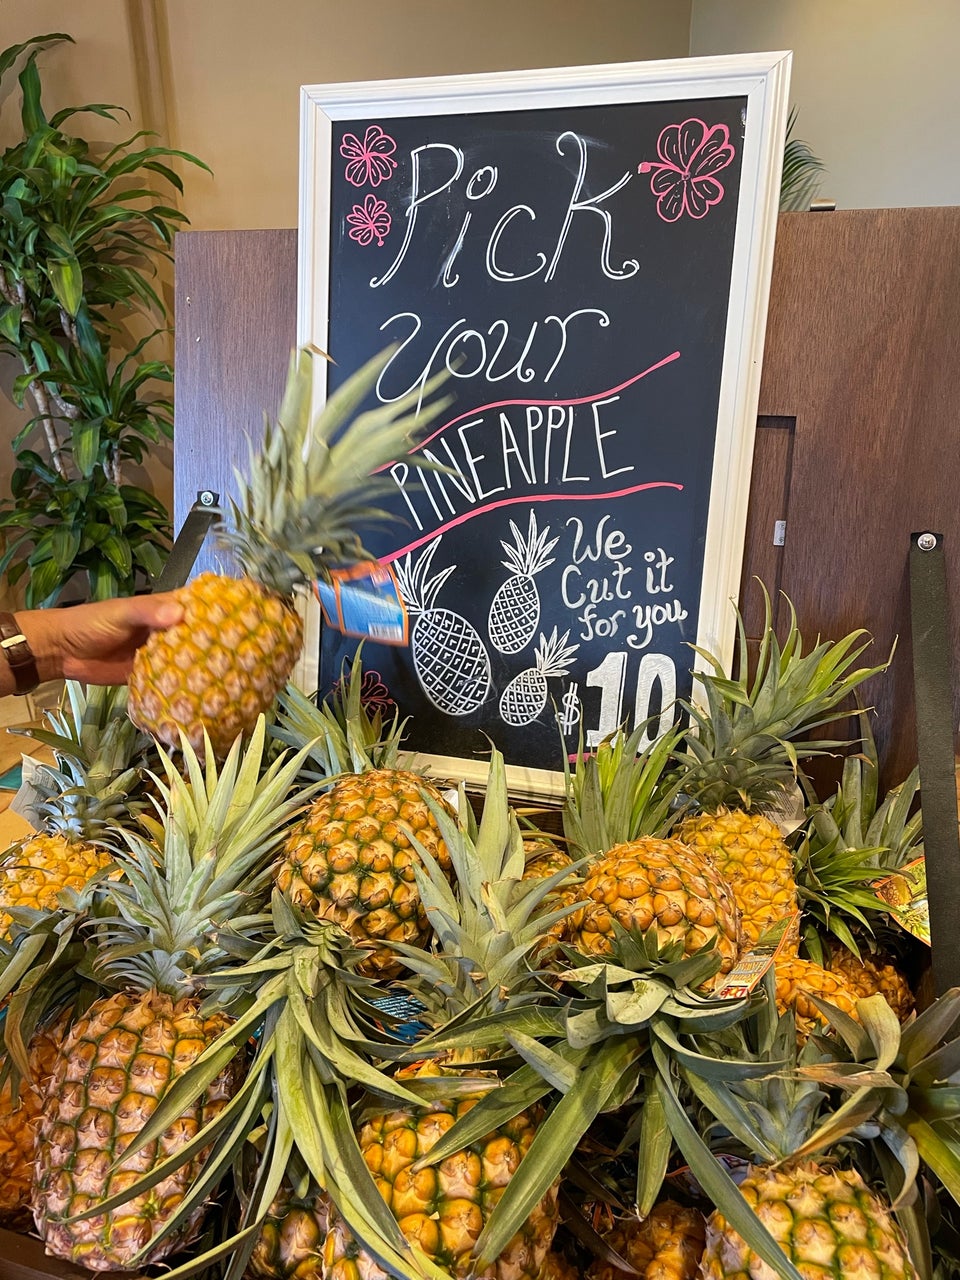 Pick
your
PINEAPPLE
We
Cut it
for you
$10